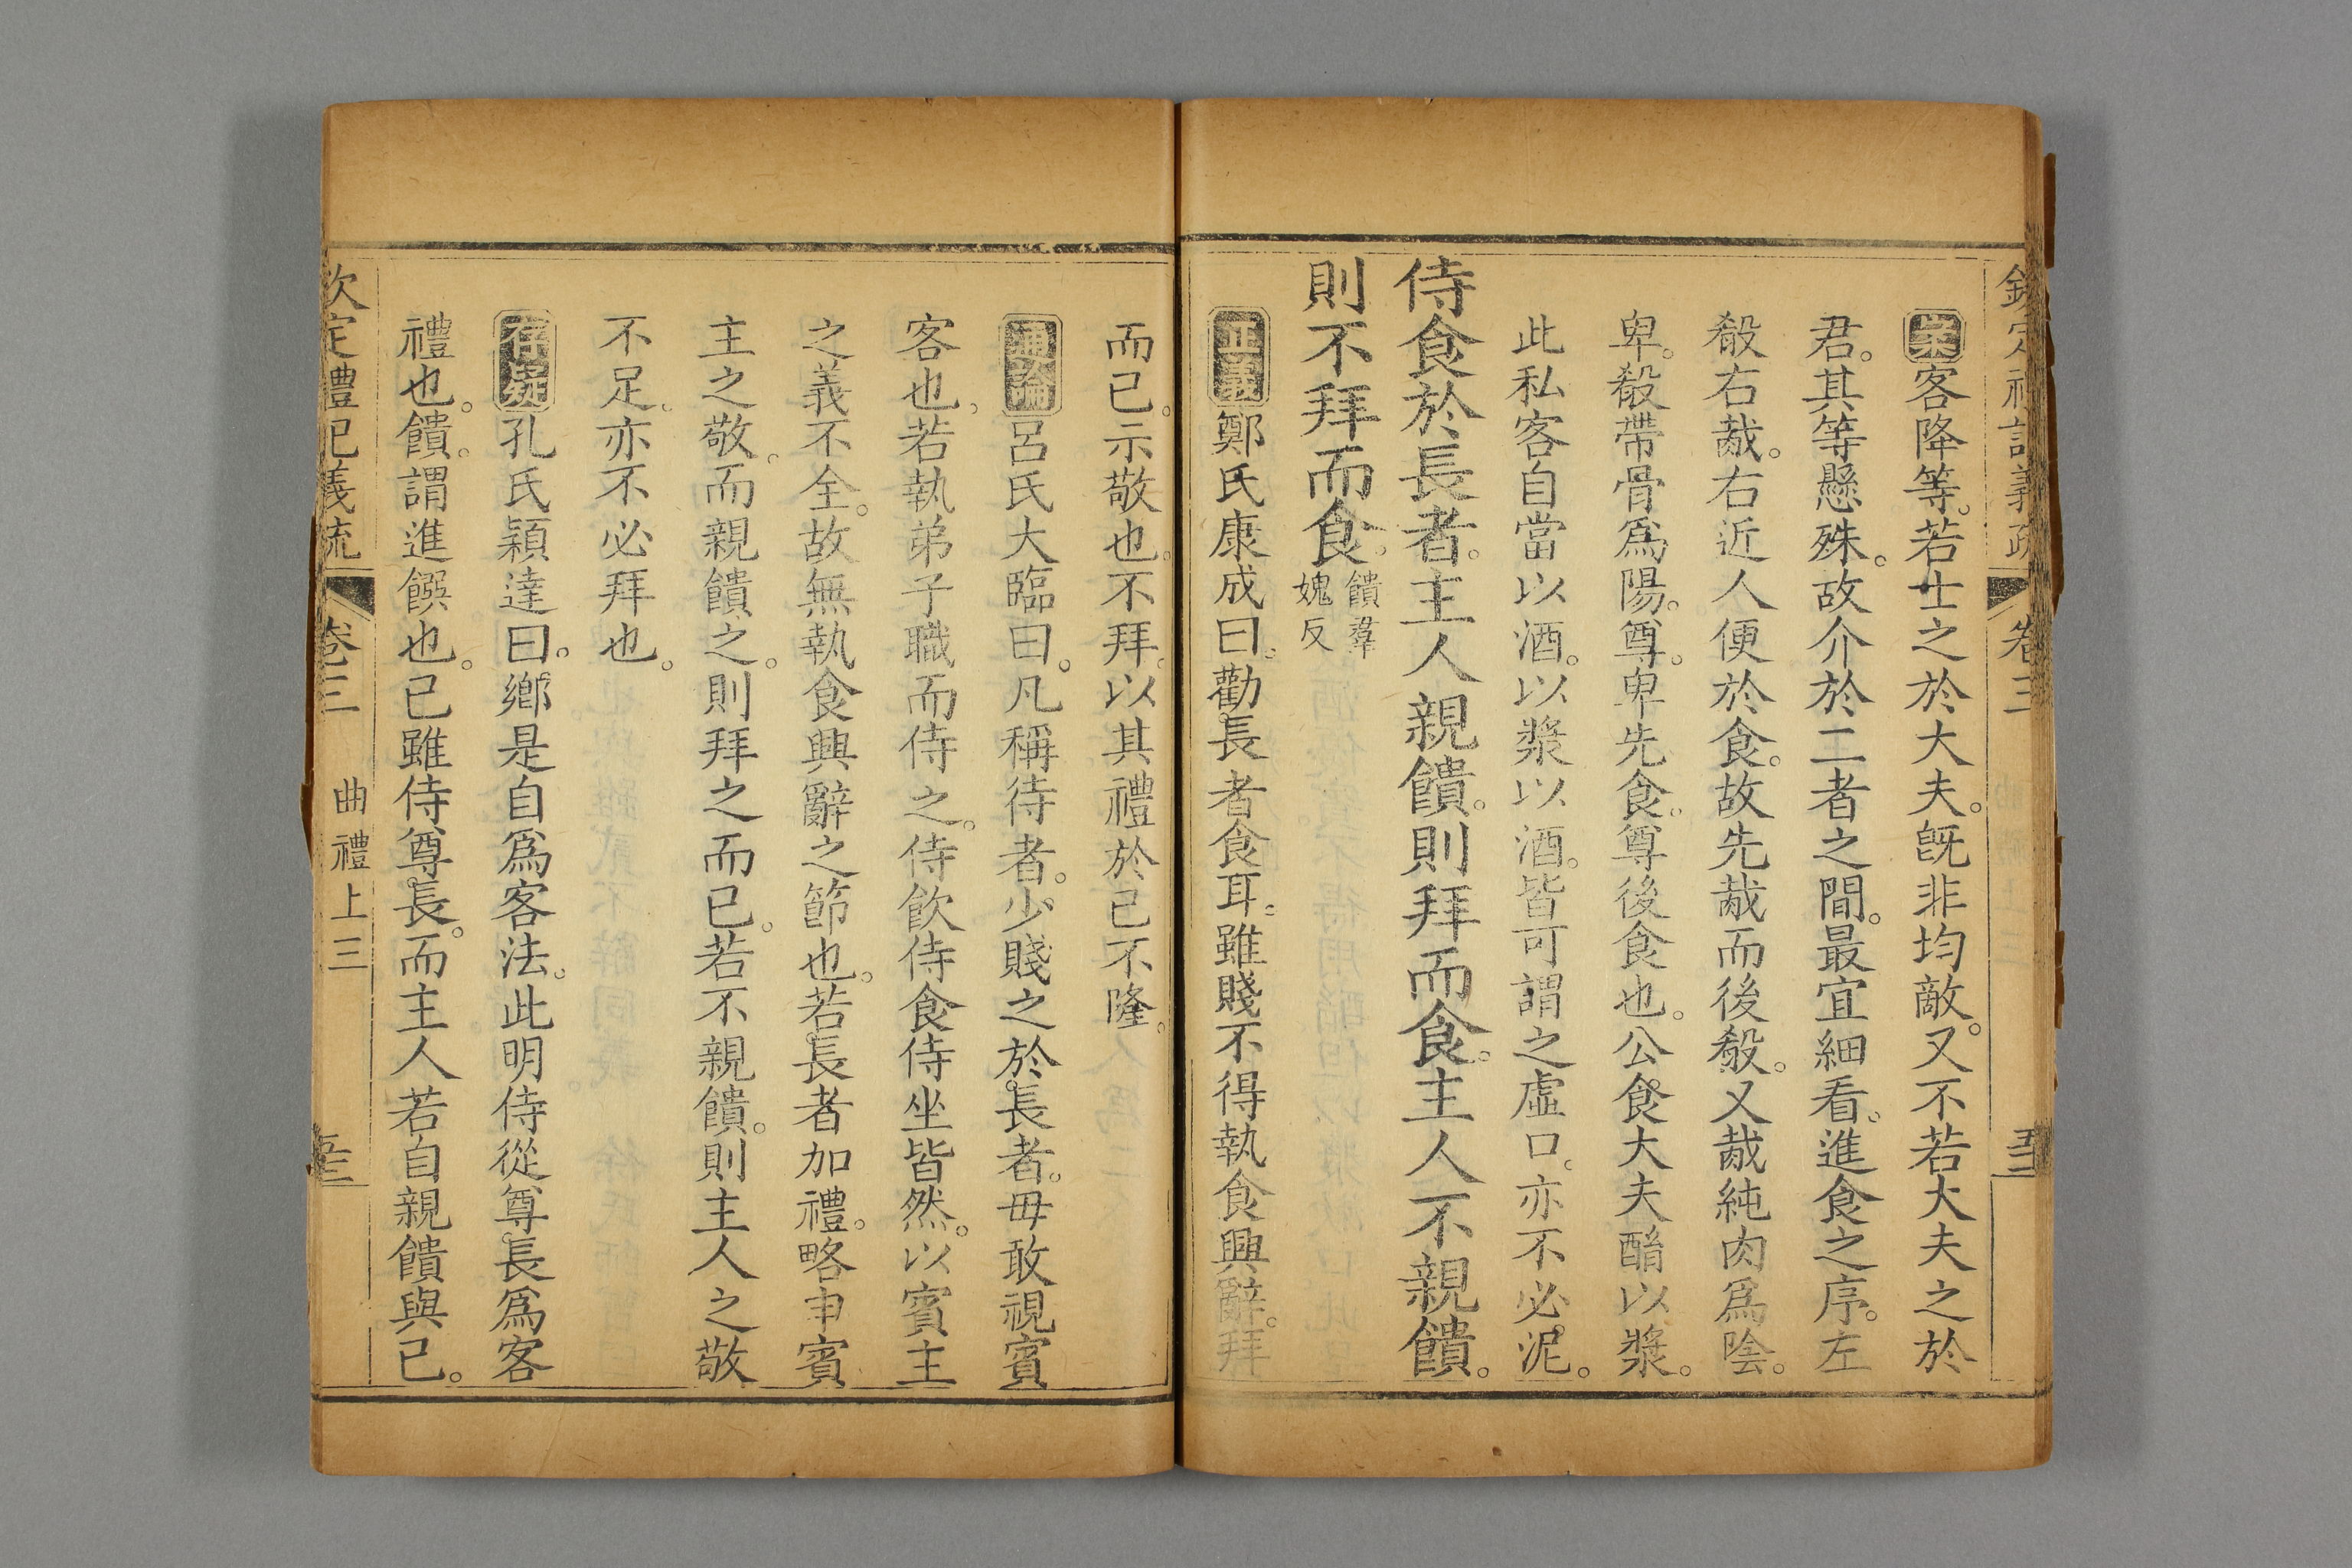 欽定禮記義疏 卷三
案客降等。若士之於大夫。旣非均敵。又不若大夫之於
君。其等懸殊。故介於二者之間。最宜細看。進食之序。左
殽右胾。右近人便於食。故先胾而後殽。又胾純肉爲陰。
卑。殽帶骨爲陽。尊。卑先食。尊後食也。公食大夫酳以漿。
此私客自當以酒。以漿以酒。皆可謂之虛口。亦不必泥。
侍食於長者。主人親饋。則拜而食。主人不親饋。
則不拜而食。饋羣媿反
正義鄭氏康成曰。勸長者食耳。雖賤不得執食興辭。拜
而已。示敬也。不拜。以其禮於己不隆。
通論呂氏大臨曰。凡稱侍者。少賤之於長者。毋敢視賓
客也。若執弟子職而侍之。侍飲侍食侍坐皆然。以賓主
之義不全。故無執食興辭之節也。若長者加禮。略申賓
主之敬。而親饋之。則拜之而已。若不親饋。則主人之敬
不足。亦不必拜也。
存疑孔氏穎達曰。鄉是自爲客法。此明侍從尊長爲客
禮也。饋。謂進饌也。己雖侍尊長。而主人若自親饋與己。
欽定禮記義疏 卷三 曲禮上三